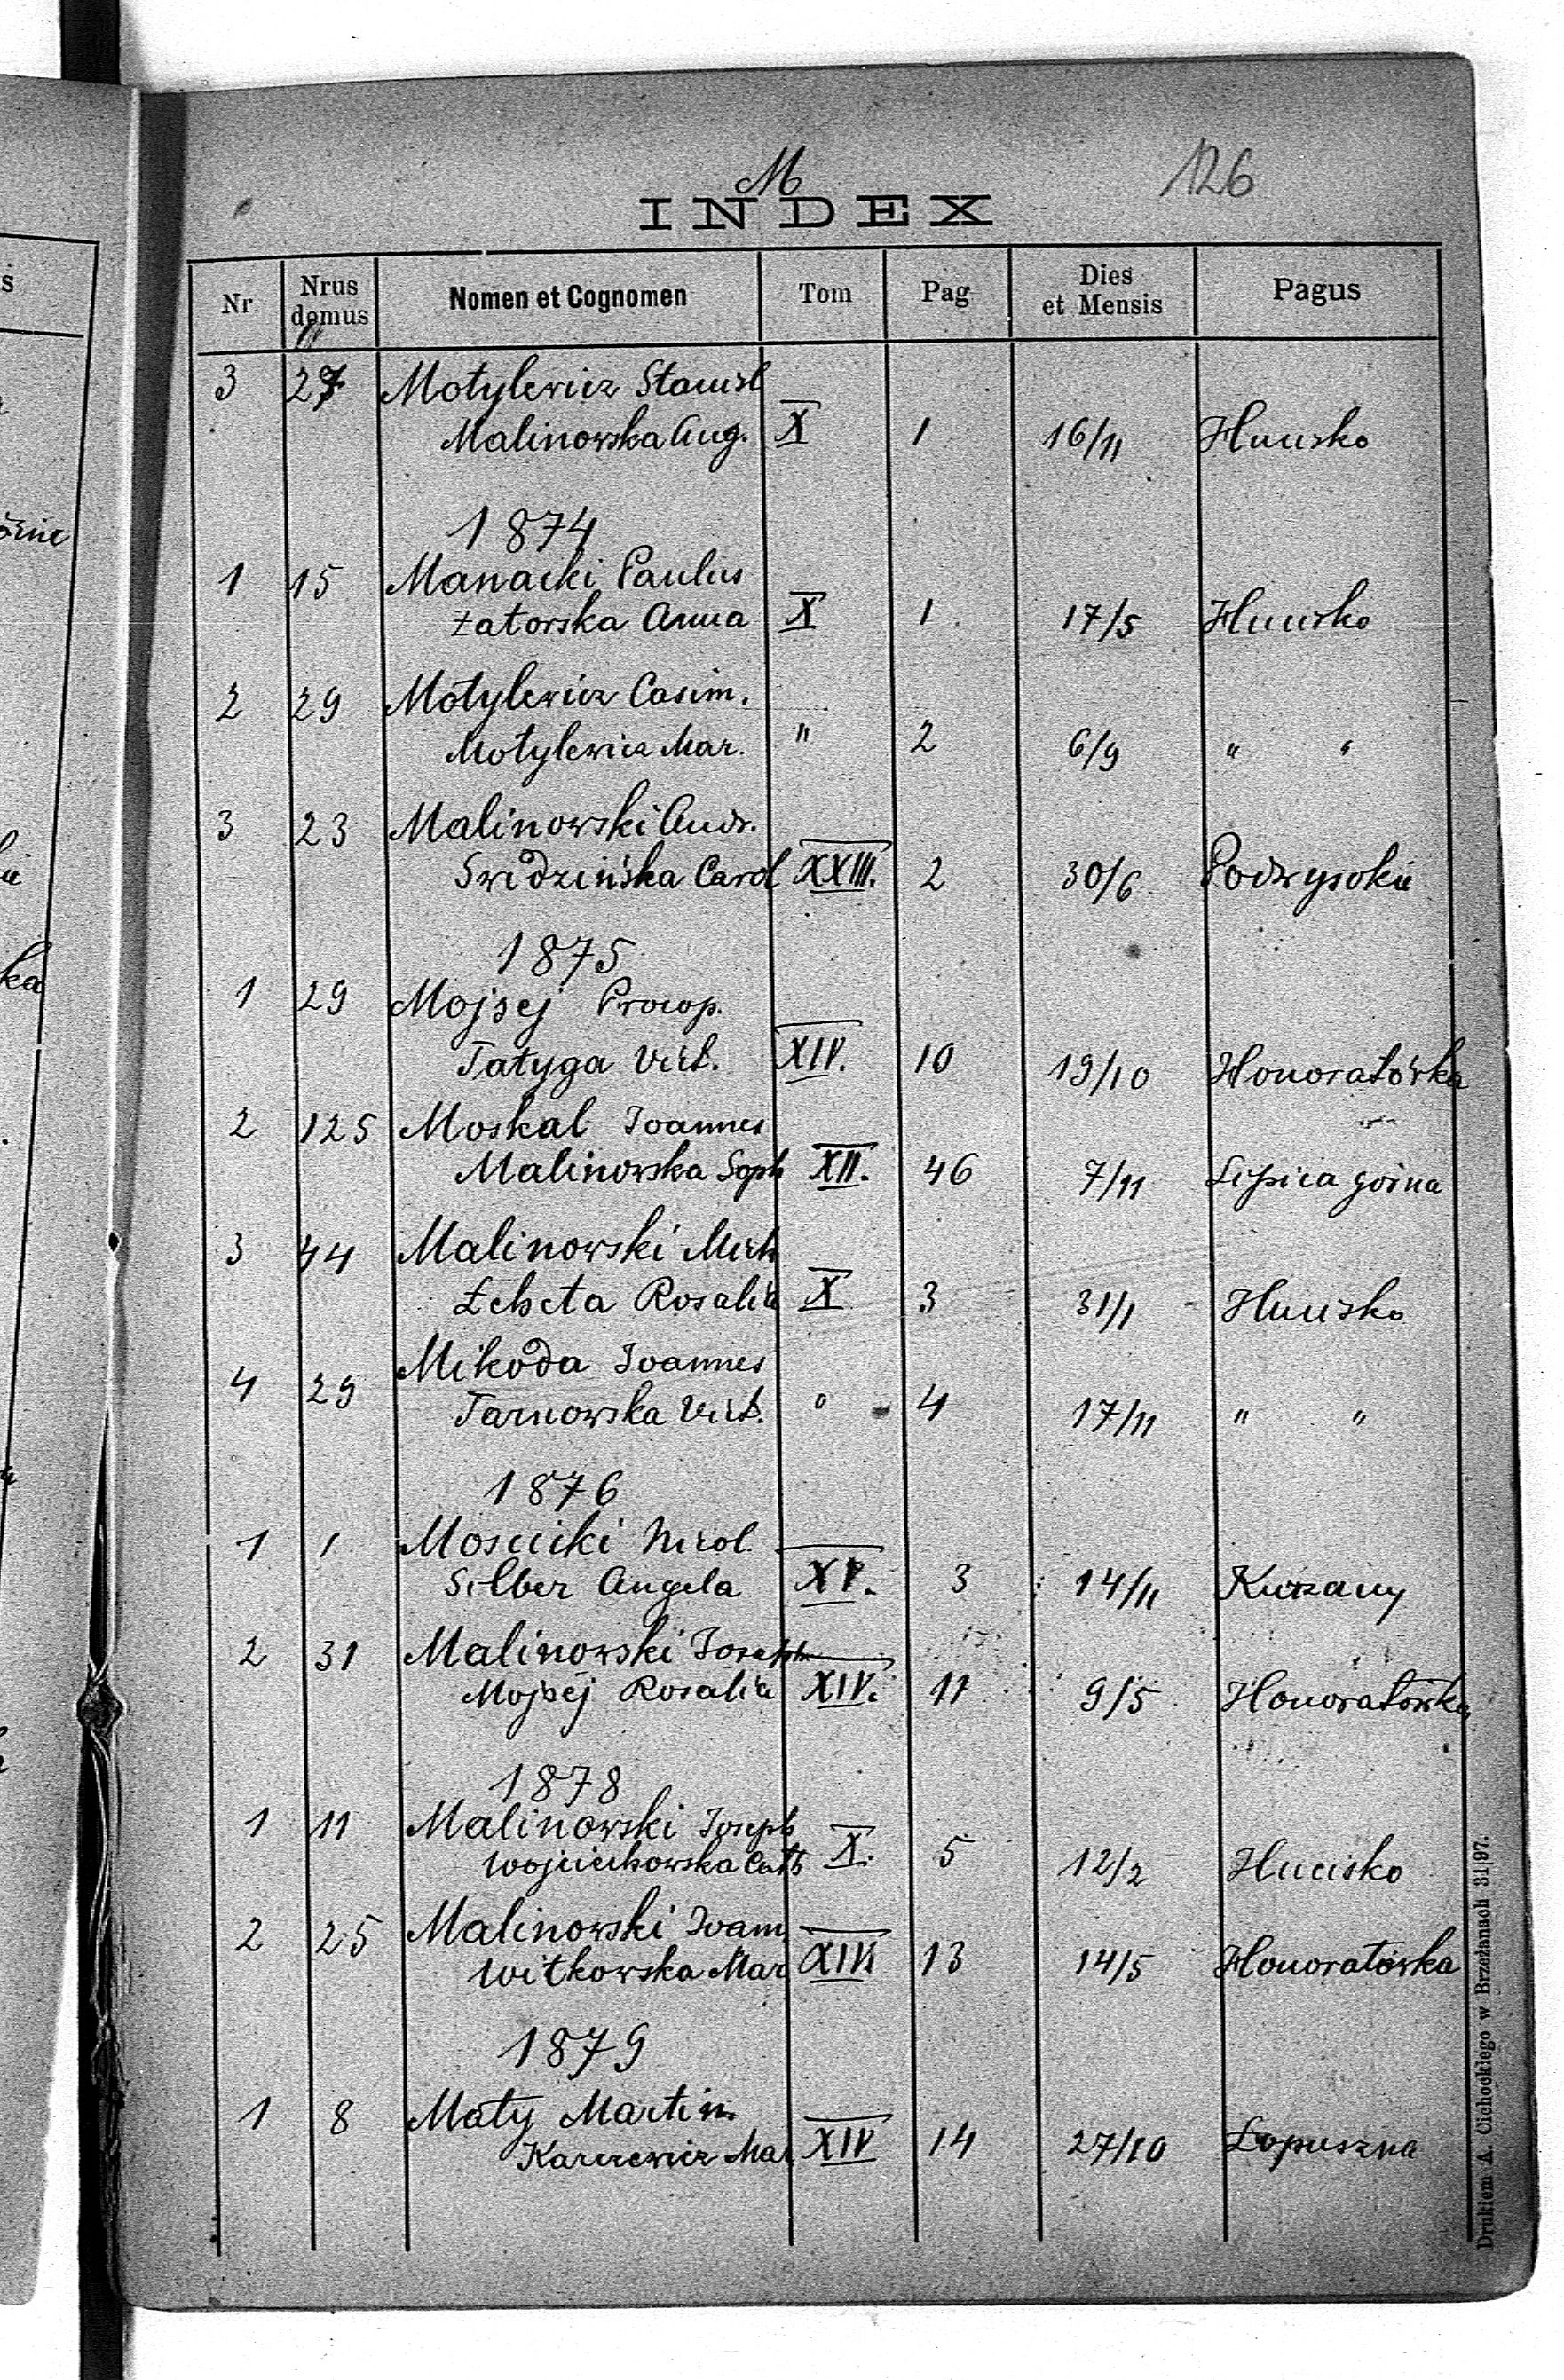 M
126
INDEX
Nr. Nrus domus Nomen et Cognomen Tom Pag. Dies et Mensis Pagus
3 27 Motylewicz Stanisl
Malinowska Aug. X 1 16/11 Hucisko
1874
1 15 Manacki Paulus
Zatorska Anna X 1 17/5 Hucisko
2 29 Motylewicz Casim.
Motylewicz Mar. " 2 6/9 " "
3 23 Malinowski Andr.
Swidzińska Carol XXIII. 2 30/6 Podwysokie
1875
1 29 Mojsej Procop.
Tatyga Vict. XIV. 10 19/10 Honoratówka
2 125 Moskal Joannes
Malinowska Soph XII. 46 7/11 Lipica górna
3 44 Malinowski Mich
Rosalia X 3 31/1 Hucisko
4 29 Mikoda Joannes
Tarnowska Vict. " 4 17/11 " "
1876
1 1 Moscicki Nicol.
Silber Angela XV. 3 14/11 Kurzany
2 31 Malinowski Joseph
Mojsej Rosalia XIV. 11 9/5 Honoratówka
1878
1 11 Malinowski Joseph
Wojciechowska Cath X. 5 12/2 Hucisko
2 25 Malinowski Joann
Witkowska Mar XIV 13 14/5 Honoratówka
1879
1 8 Maty Martin.
Karczewicz Mar XIV 14 27/10 Lopuszna
Drukiem A. Cichockiego w Brzeżanach 31|97.